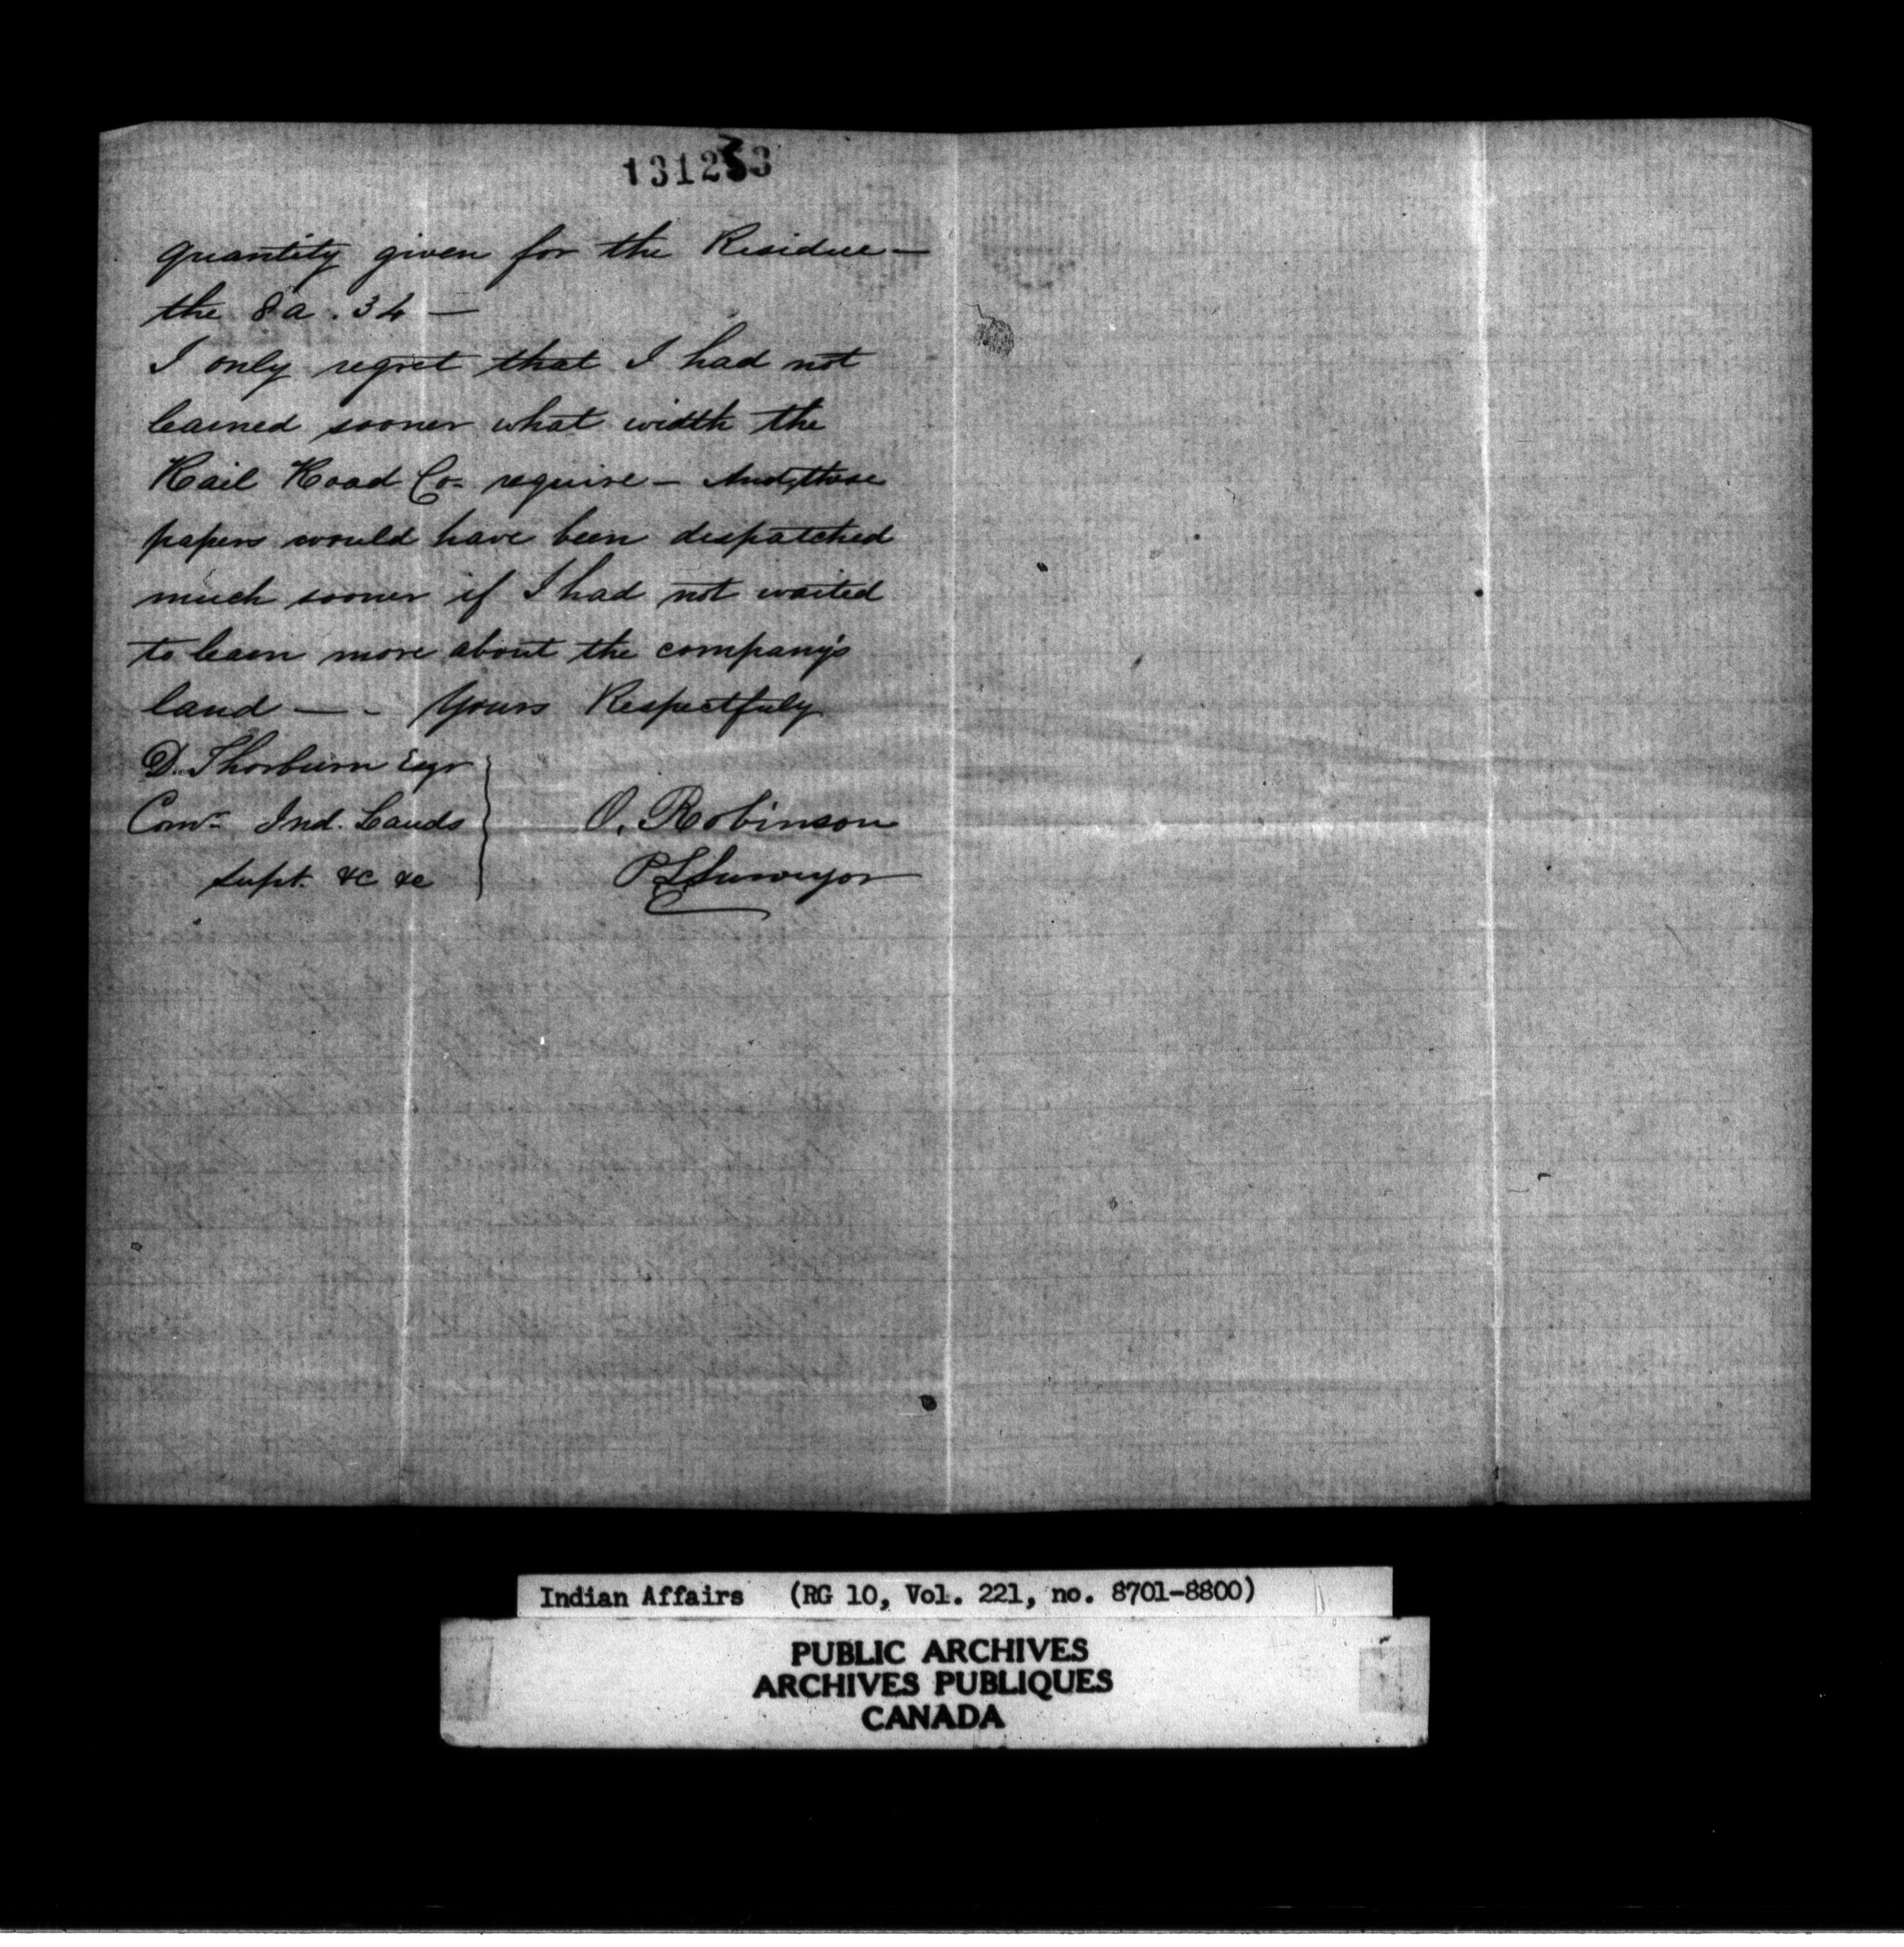 131253
quantity given for the Residue —
the 8a. 34 —
I only regret that I had not
learned sooner what width the
Rail Road Co. require — And, these
papers would have been despatched
much sooner if I had not waited
to learn more about the company's
land — - Yours Respectfuly
D. Thorburn Esqr
Comr. Ind. Lands
O. Robinson
Supt. &c &c
P L Surveyor
Indian Affairs (RG 10, Vol. 221, no. 8701-8800)
PUBLIC ARCHIVES
ARCHIVES PUBLIQUES
CANADA